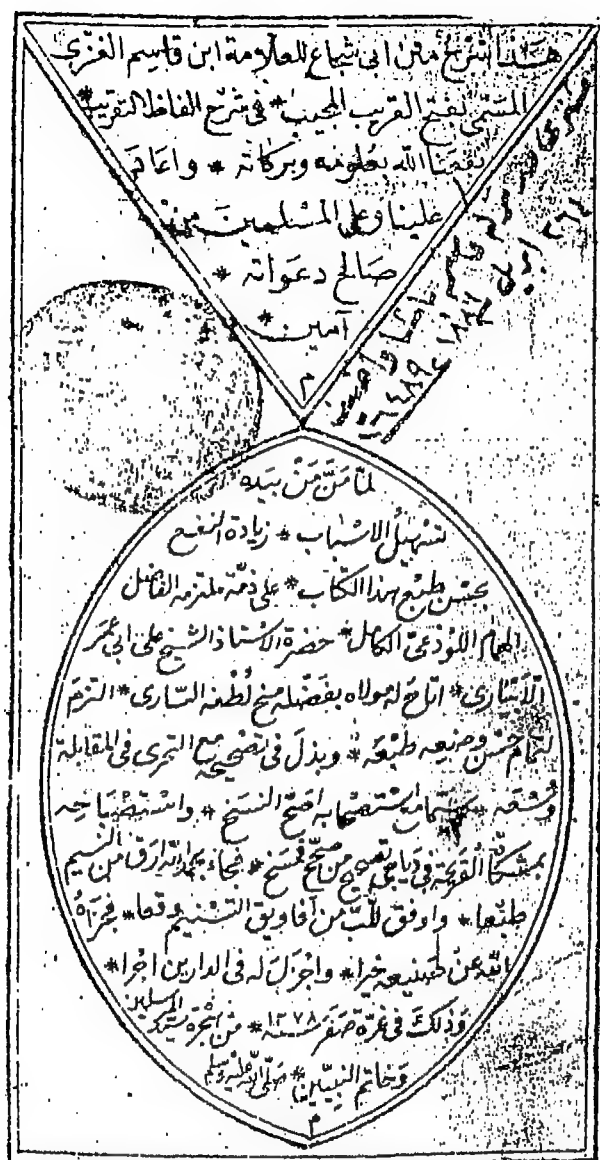 هذا شرح متن ابى شجاع للعلامة ابن قاسم الغزى
المسمى بفتح القريب المجيب * فى شرح الفاظ التقريب *
نفعنا الله بعلومه وبركاته * واعاد
علينا وعلى المسلمين من
صالح دعواته *
آمين *
م
لما منّ منْ بيده
تسهيل الاسباب * زيادة النفع
بحسن طبع هذا الكتاب * على ذمة ملتزمه الفاضل
الهمام اللوذعىّ الكامل * حضرة الاستاذ الشيخ على ابى عمر
الابنارى * اتاح له مولاه بفضله منح لطفه السارى * التزم
تمام حسن وضعه طبعه * وبذل فى تصحيحه مع التحرى فى المقابلة
وسعه * باستصحابه اصحّ النسخ * واستصباحه
بمشكاة القريحة فى دياجى من صحّح فنسخ * فجاء بحمد الله ارقّ من النسيم
طبعا * واوفق للّب من افاويق التسنيم وقعا * فجزاه
الله عن صنيعه خيرا * واجزل له فى الدارين اجرا *
وذلك فى غرّة صفر سنة ١٢٧٨ * من هجرة سيد المرسلين
وخاتم النبيين * صلّى الله عليه وسلم
م
٢٦ ابريل ١٨٨٢